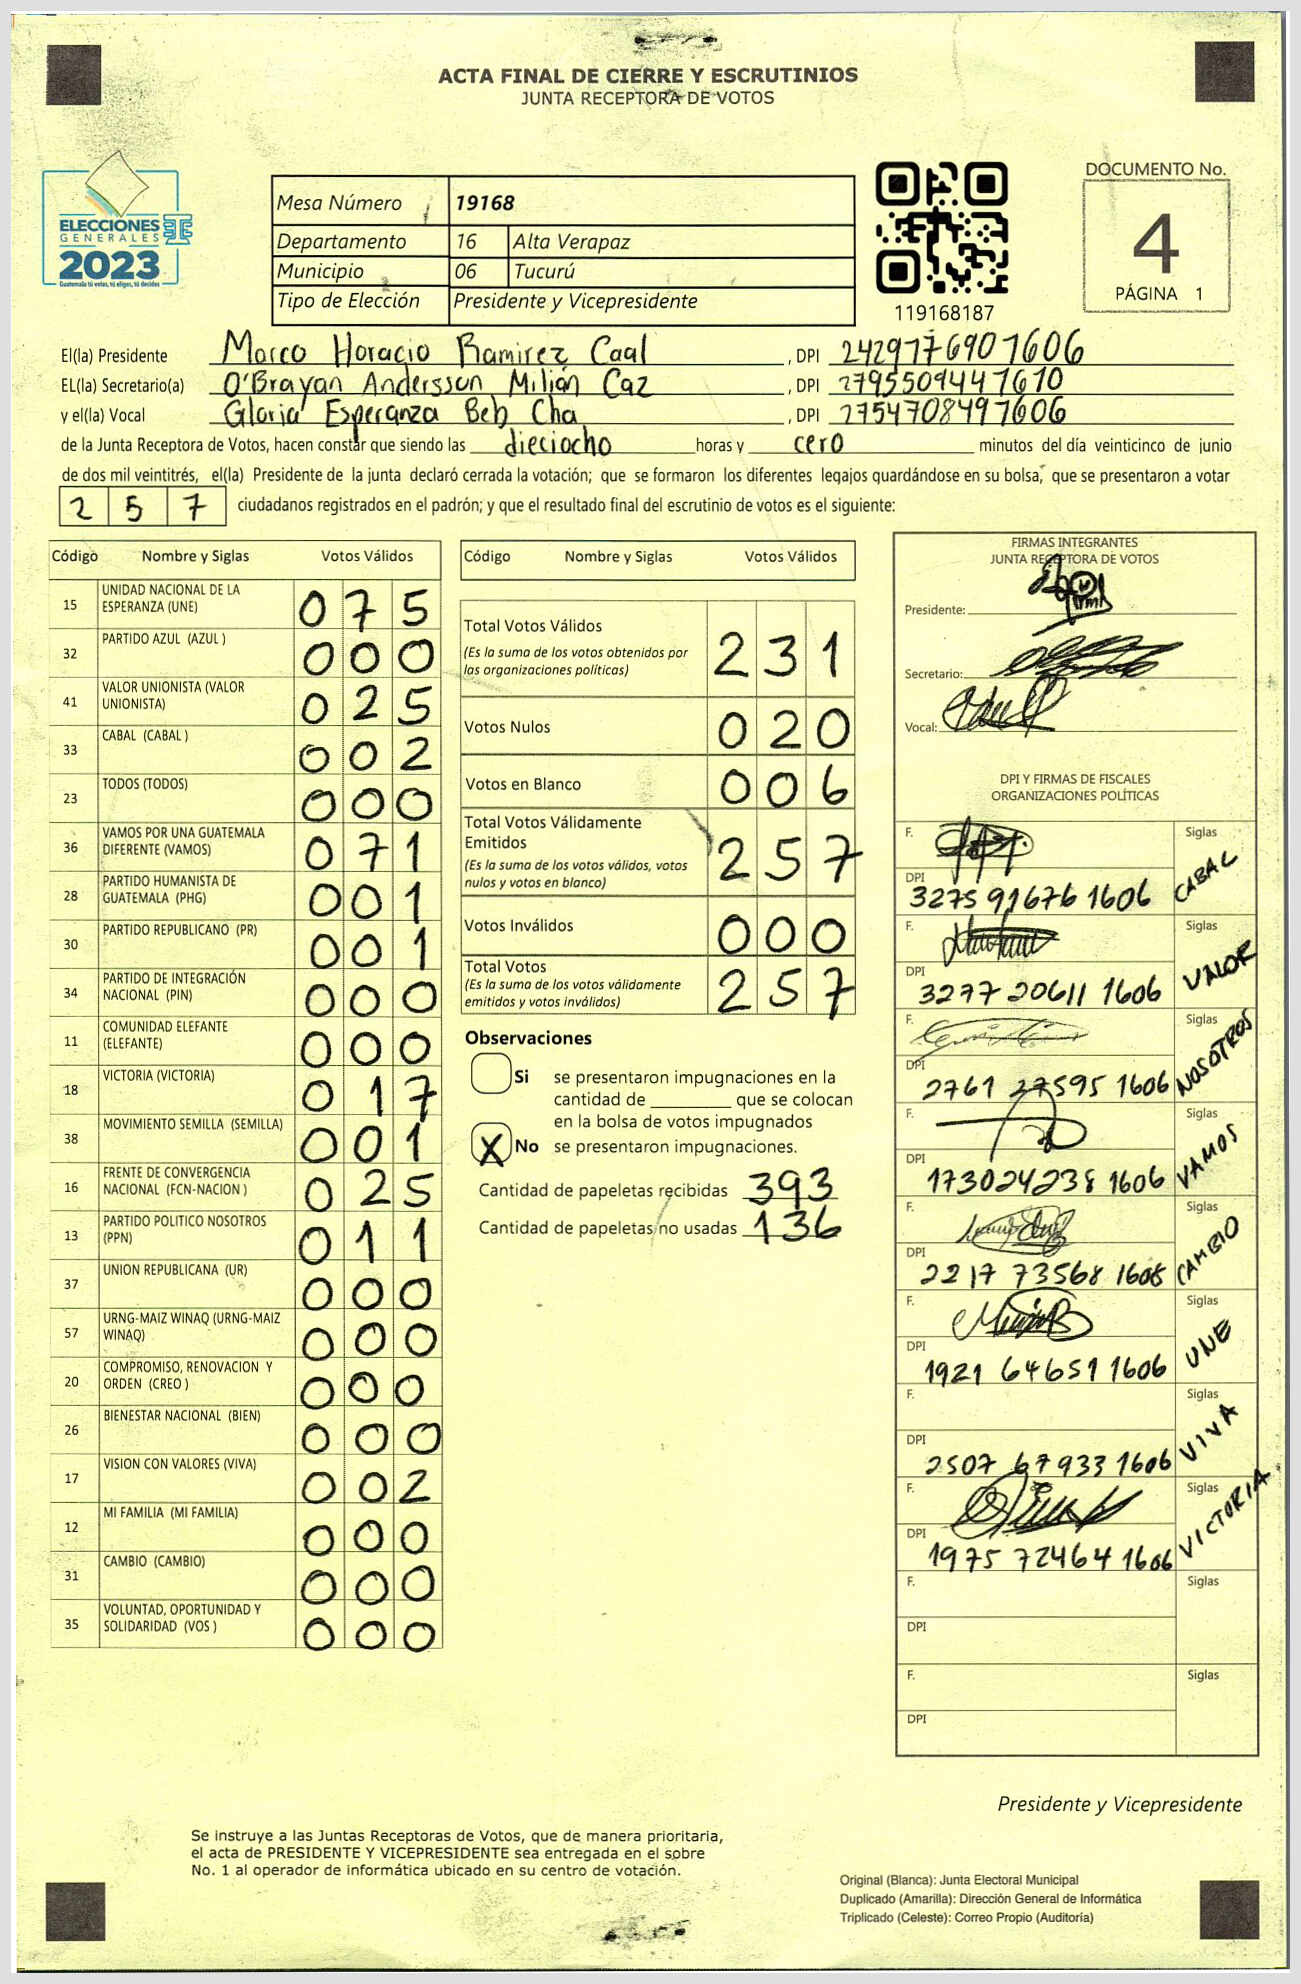 ACTA FINAL DE CIERRE Y ESCRUTINIOS
JUNTA RECEPTORA DE VOTOS
ELECCIONES
GENERALES
2023
Guatemala tú votas, tú eliges, tú decides
Mesa Número 19168
Departamento 16 Alta Verapaz
Municipio 06 Tucurú
Tipo de Elección Presidente y Vicepresidente
119168187
DOCUMENTO No.
4
PÁGINA 1
El(la) Presidente Marco Horacio Ramirez Caal , DPI 2429776901606
EL(la) Secretario(a) O'Brayan Andersson Milián Caz , DPI 2795509441610
y el(la) Vocal Gloria Esperanza Beb Cha , DPI 2754708491606
de la Junta Receptora de Votos, hacen constar que siendo las dieciocho horas y cero minutos del día veinticinco de junio
de dos mil veintitrés, el(la) Presidente de la junta declaró cerrada la votación; que se formaron los diferentes legajos guardándose en su bolsa, que se presentaron a votar
2 5 7 ciudadanos registrados en el padrón; y que el resultado final del escrutinio de votos es el siguiente:
Código Nombre y Siglas Votos Válidos
15 UNIDAD NACIONAL DE LA ESPERANZA (UNE) 0 7 5
32 PARTIDO AZUL (AZUL ) 0 0 0
41 VALOR UNIONISTA (VALOR UNIONISTA) 0 2 5
33 CABAL (CABAL ) 0 0 2
23 TODOS (TODOS) 0 0 0
36 VAMOS POR UNA GUATEMALA DIFERENTE (VAMOS) 0 7 1
28 PARTIDO HUMANISTA DE GUATEMALA (PHG) 0 0 1
30 PARTIDO REPUBLICANO (PR) 0 0 1
34 PARTIDO DE INTEGRACIÓN NACIONAL (PIN) 0 0 0
11 COMUNIDAD ELEFANTE (ELEFANTE) 0 0 0
18 VICTORIA (VICTORIA) 0 1 7
38 MOVIMIENTO SEMILLA (SEMILLA) 0 0 1
16 FRENTE DE CONVERGENCIA NACIONAL (FCN-NACION ) 0 2 5
13 PARTIDO POLITICO NOSOTROS (PPN) 0 1 1
37 UNION REPUBLICANA (UR) 0 0 0
57 URNG-MAIZ WINAQ (URNG-MAIZ WINAQ) 0 0 0
20 COMPROMISO, RENOVACION Y ORDEN (CREO ) 0 0 0
26 BIENESTAR NACIONAL (BIEN) 0 0 0
17 VISION CON VALORES (VIVA) 0 0 2
12 MI FAMILIA (MI FAMILIA) 0 0 0
31 CAMBIO (CAMBIO) 0 0 0
35 VOLUNTAD, OPORTUNIDAD Y SOLIDARIDAD (VOS ) 0 0 0
Código Nombre y Siglas Votos Válidos
Total Votos Válidos 2 3 1
(Es la suma de los votos obtenidos por
las organizaciones políticas)
Votos Nulos 0 2 0
Votos en Blanco 0 0 6
Total Votos Válidamente
Emitidos 2 5 7
(Es la suma de los votos válidos, votos
nulos y votos en blanco)
Votos Inválidos 0 0 0
Total Votos 2 5 7
(Es la suma de los votos válidamente
emitidos y votos inválidos)
Observaciones
Si se presentaron impugnaciones en la
cantidad de ________ que se colocan
en la bolsa de votos impugnados
X No se presentaron impugnaciones.
Cantidad de papeletas recibidas 393
Cantidad de papeletas no usadas 136
FIRMAS INTEGRANTES
JUNTA RECEPTORA DE VOTOS
Presidente:
Secretario:
Vocal:
DPI Y FIRMAS DE FISCALES
ORGANIZACIONES POLÍTICAS
F. Siglas CABAL
DPI 3275 91676 1606
F. Siglas VALOR
DPI 3277 20611 1606
F. Siglas NOSOTROS
DPI 2761 27595 1606
F. Siglas VAMOS
DPI 173024238 1606
F. Siglas CAMBIO
DPI 2217 73568 1608
F. Siglas UNE
DPI 1921 64651 1606
F. Siglas VIVA
DPI 2507 67933 1606
F. Siglas VICTORIA
DPI 1975 72464 1606
F. Siglas
DPI
F. Siglas
DPI
Presidente y Vicepresidente
Se instruye a las Juntas Receptoras de Votos, que de manera prioritaria,
el acta de PRESIDENTE Y VICEPRESIDENTE sea entregada en el sobre
No. 1 al operador de informática ubicado en su centro de votación.
Original (Blanca): Junta Electoral Municipal
Duplicado (Amarilla): Dirección General de Informática
Triplicado (Celeste): Correo Propio (Auditoría)